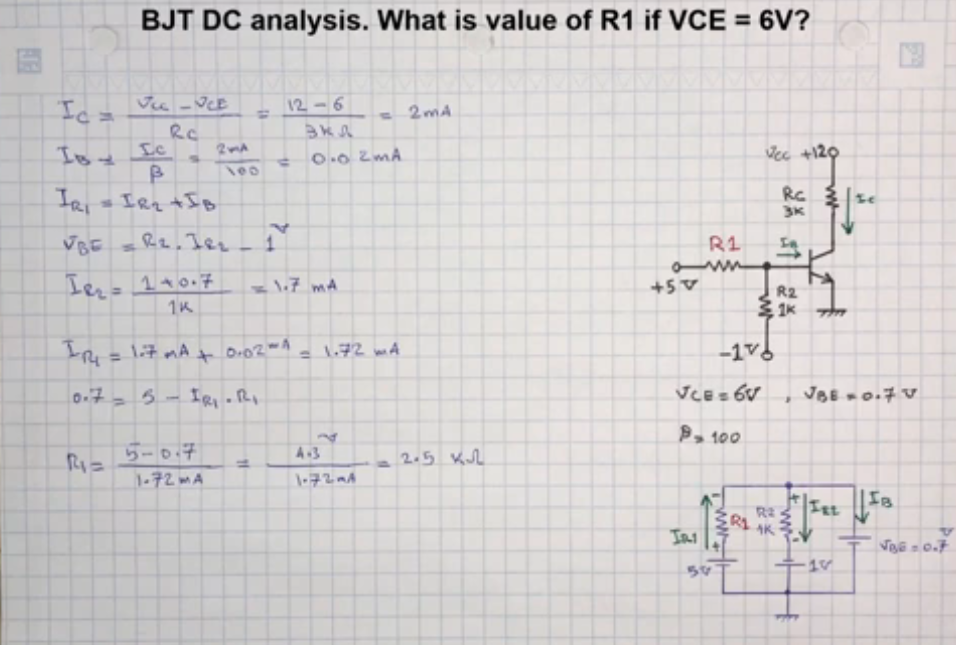 BJT DC analysis. What is value of R1 if VCE = 6V?
IC = (VCC - VCE) / RC = (12 - 6) / 3KΩ = 2mA
IB = IC / β = 2mA / 100 = 0.02mA
IR1 = IR2 + IB
VBE = R2 . IR2 - 1V
IR2 = (1 + 0.7) / 1K = 1.7 mA
IR1 = 1.7 mA + 0.02mA = 1.72 mA
0.7 = 5 - IR1 . R1
R1 = (5 - 0.7) / 1.72mA = 4.3V / 1.72mA = 2.5 KΩ
VCC +12
RC
3K
IC
R1
IB
+5V
R2
1K
-1V
VCE = 6V , VBE = 0.7V
β = 100
- + IR2 IB
IR1 R1 R2
1K
+ -
VBE = 0.7V
5V 1V